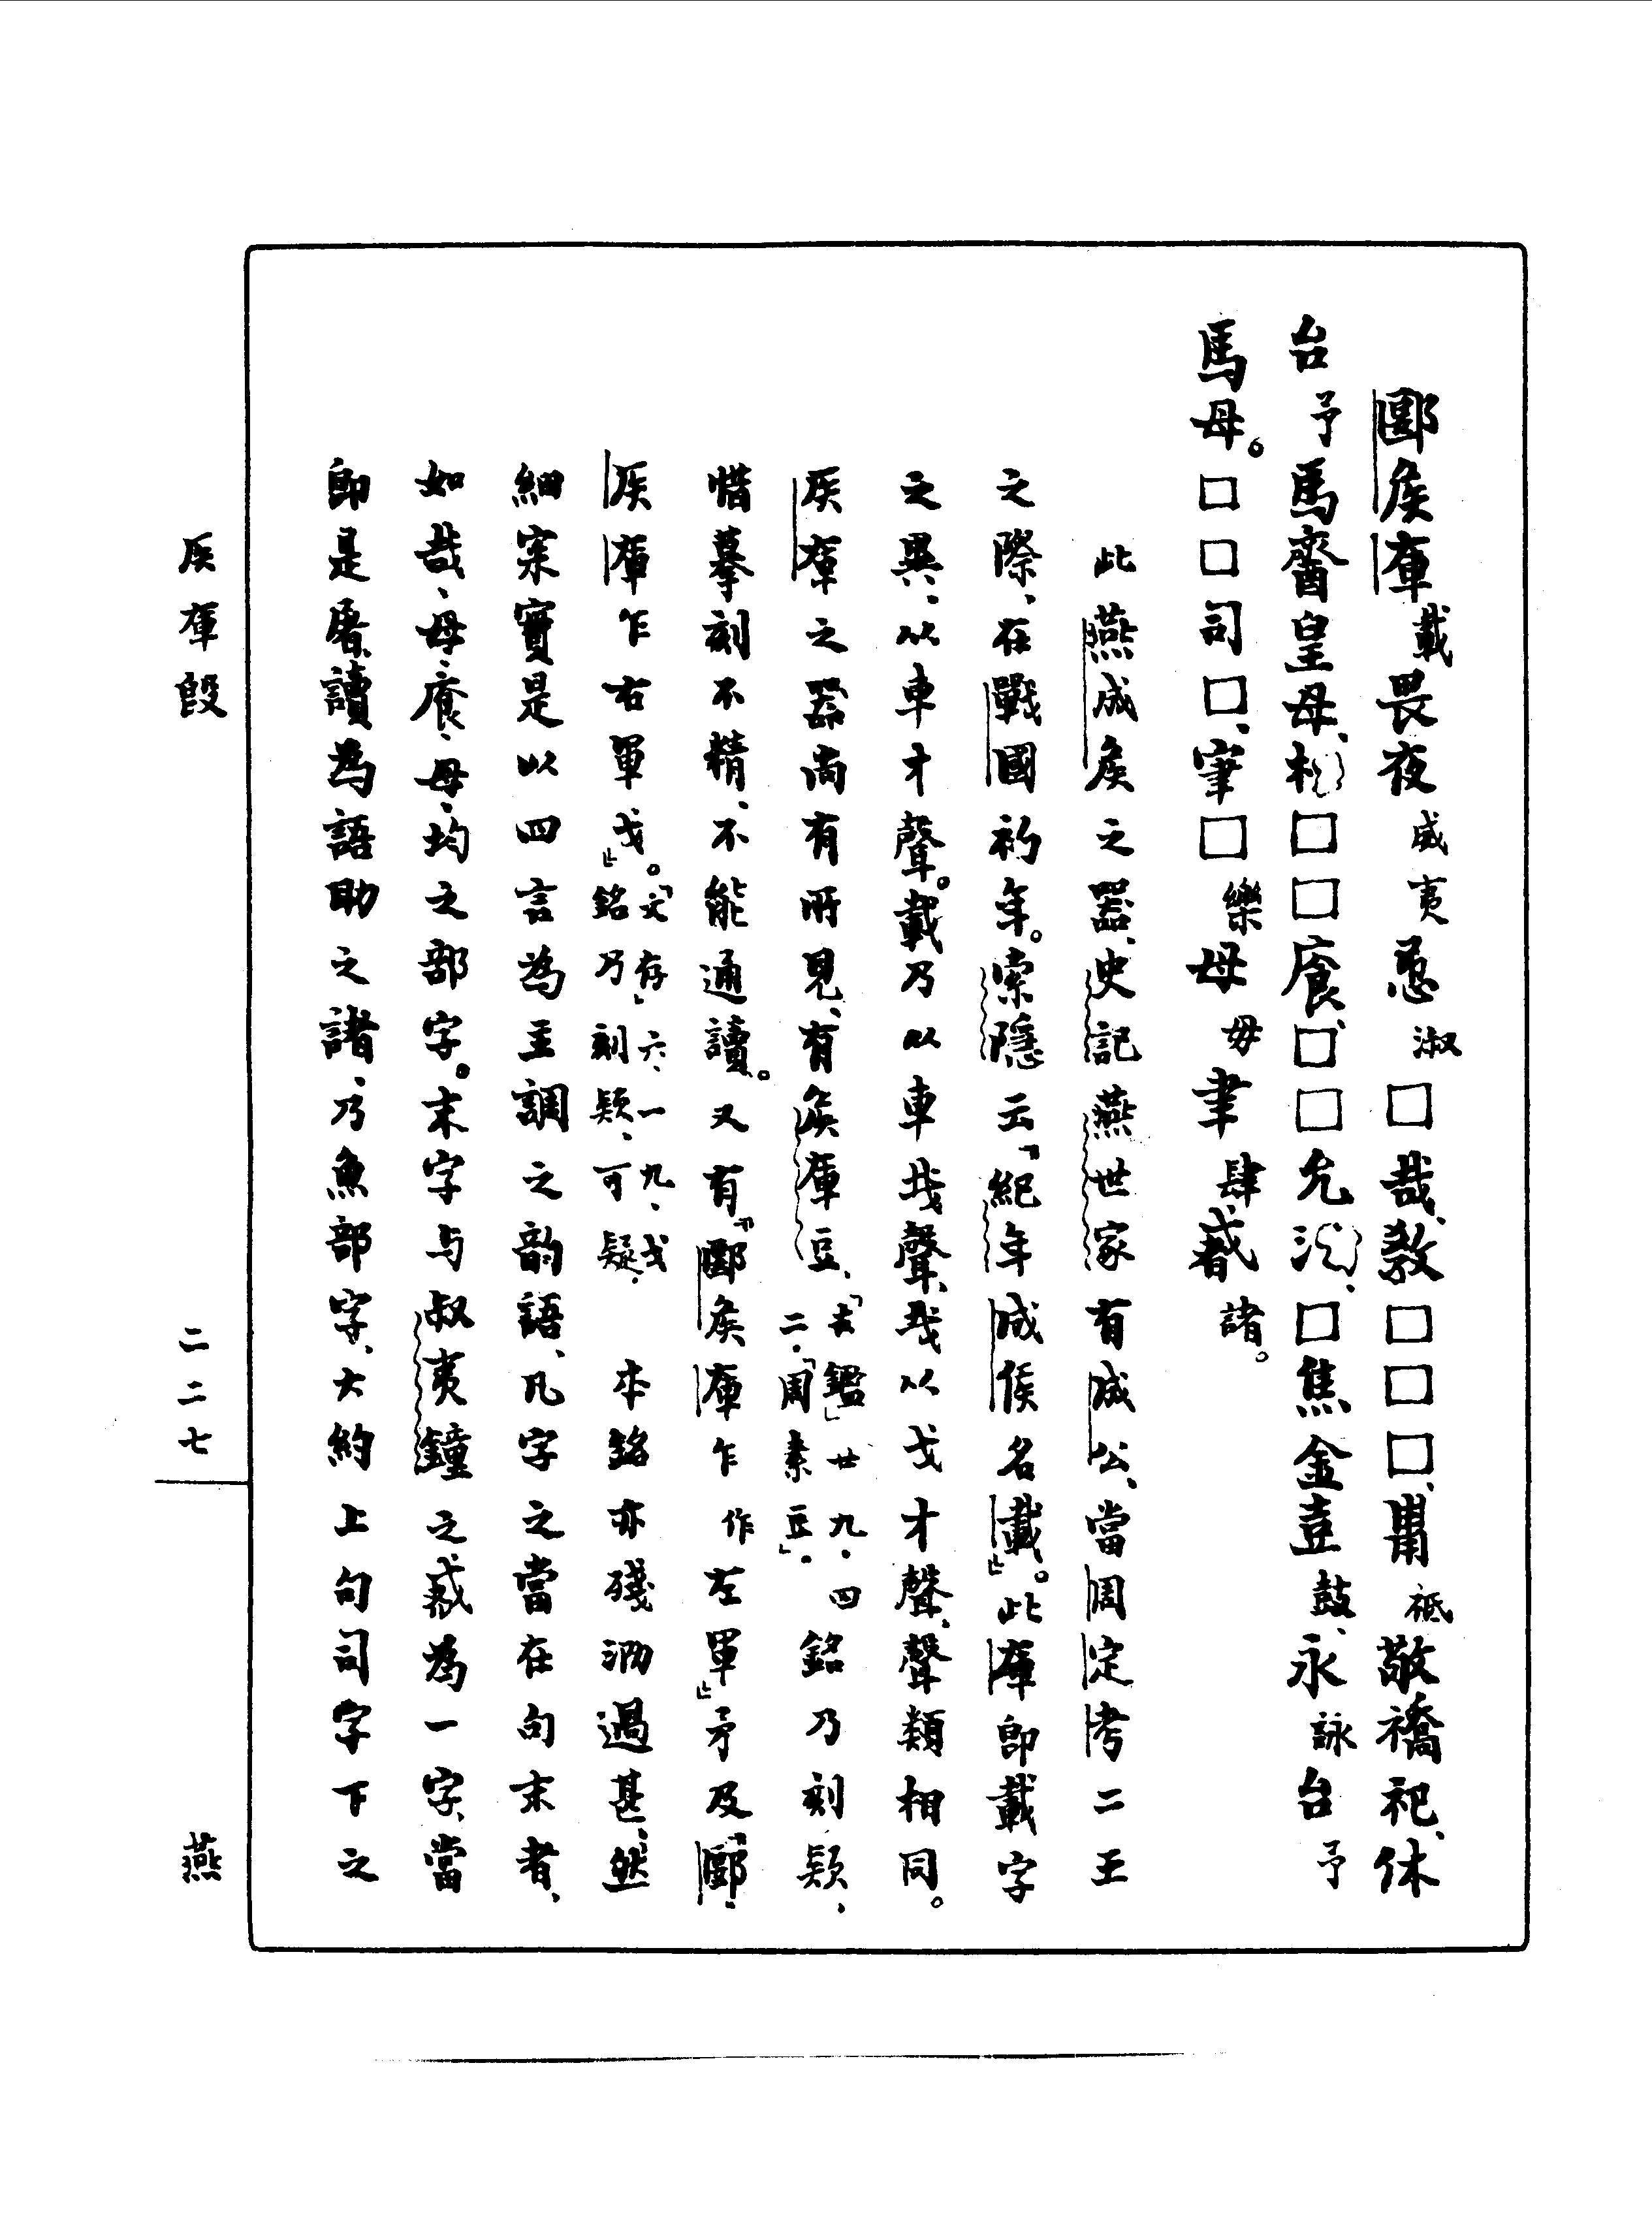 郾矦𨏕載畏夜威夷㤅淑□哉、教□□□、𦘔祗敬禱祀、休
台予馬齋皇母、□□□飺、□□允□、□焦金壴鼓、永詠台予
馬母。□□司□、□□樂母毋聿肆諸。
此燕成矦之器、史記燕世家有成公、當周定考二王
之際、在戰國初年。索隱云「紀年成侯名載」。此𨏕即載字
之異、从車才聲。載乃从車𢦏聲、𢦏从戈才聲、聲類相同。
矦𨏕之器尚有所見、有矦𨏕豆、「古鑑」廿九・四二・「周素豆」・銘乃刻款、
惜摹刻不精、不能通讀。又有「郾矦𨏕乍作左軍」矛及「郾
矦𨏕乍右軍戈」。「文存」六、一九、戈銘乃刻款、可疑、本銘亦殘泐過甚、然
細宷實是以四言為主調之韵語、凡字之當在句末者、
如哉、母、飺、母、均之部字。末字与叔夷鐘之為一字、當
即是㡯、讀為語助之諸、乃魚部字、大約上句司字下之
矦𨏕𣪘 二二七 燕